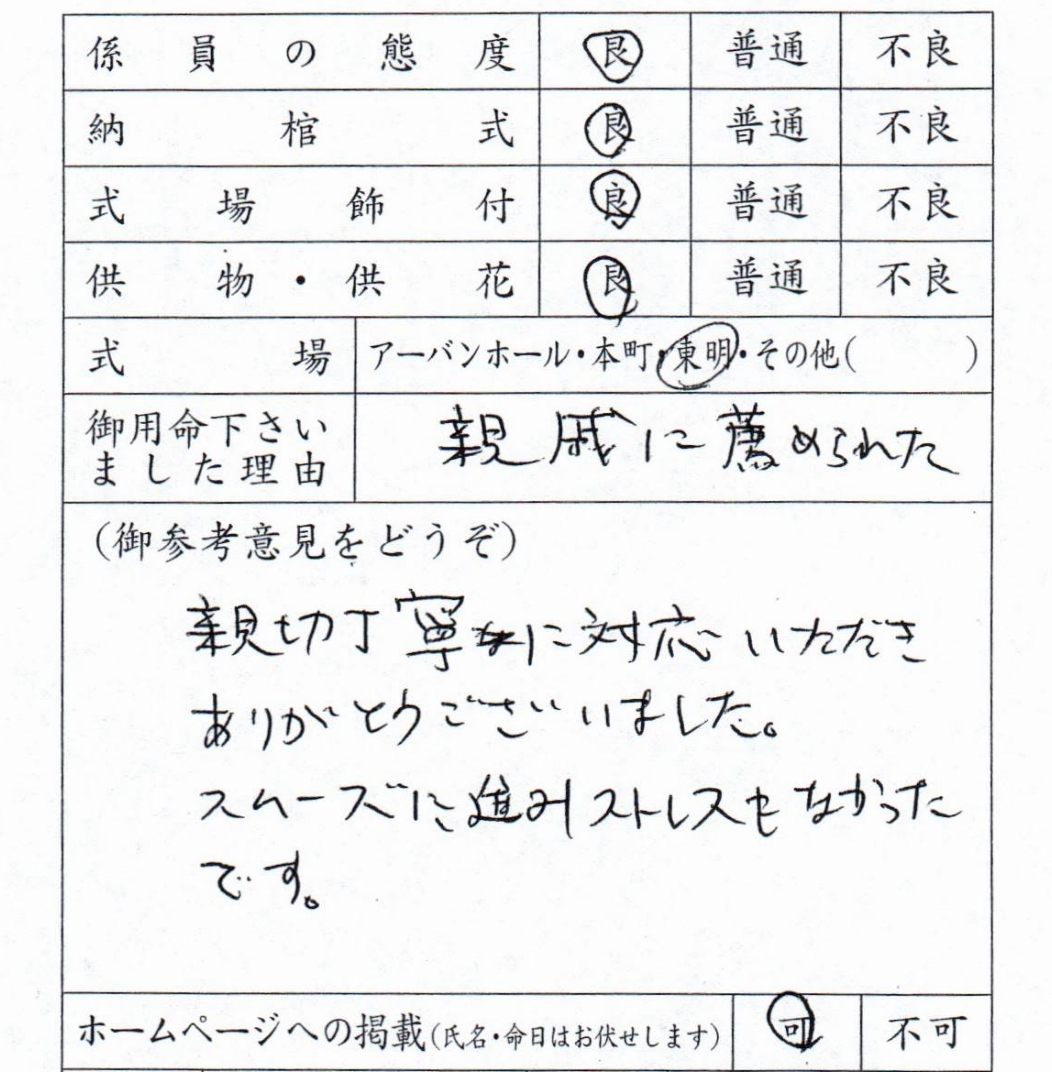 係員の態度 良 普通 不良
納棺式 良 普通 不良
式場飾付 良 普通 不良
供物・供花 良 普通 不良
式場 アーバンホール・本町・東明・その他( )
御用命下さい
ました理由
親戚に薦められた
(御参考意見をどうぞ)
親切丁寧に対応いただき
ありがとうございました。
スムーズに進みストレスもなかった
です。
ホームページへの掲載(氏名・命日はお伏せします) 可 不可